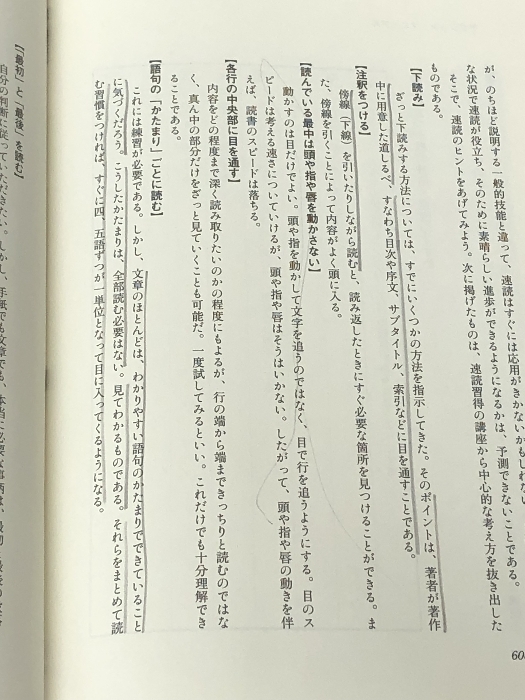 が、のちほど説明する一般的技能と違って、速読はすぐには応用がきかないかもしれない
な状況で速読が役立ち、そのために素晴らしい進歩ができるようになるかは、予測できないことである。
そこで、速読のヒントをあげてみよう。次に掲げたものは、速読習得の講座から中心的な考え方を抜き出した
ものである。
【下読み】
ざっと下読みする方法については、すでにいくつかの方法を指示してきた。そのポイントは、著者が著作
中に用意した道しるべ、すなわち目次や序文、サブタイトル、索引などに目を通すことである。
【注釈をつける】
傍線(下線)を引いたりしながら読むと、読み返したときにすぐ必要な箇所を見つけることができる。ま
た、傍線を引くことによって内容がよく頭に入る。
【読んでいる最中は頭や指や唇を動かさない】
動かすのは目だけでよい。頭や指を動かして文字を追うのではなく、目で行を追うようにする。目のス
ピードは考える速さについていけるが、頭や指や唇はそうはいかない。したがって、頭や指や唇の動きを伴
えば、読書のスピードは落ちる。
【各行の中央部に目を通す】
内容をどの程度まで深く読み取りたいのかの程度にもよるが、行の端から端まできっちりと読むのではな
く、真ん中の部分だけをざっと見ていくことも可能だ。一度試してみるといい。これだけでも十分理解でき
ることである。
【語句の「かたまり」ごとに読む】
これには練習が必要である。しかし、文章のほとんどは、わかりやすい語句のかたまりでできていること
に気づくだろう。こうしたかたまりは、全部読む必要はない。見てわかるものである。それらをまとめて読
む習慣をつければ、すぐに四、五語ずつが一単位となって目に入ってくるようになる。
【「最初」と「最後」を読む】
自分の判断に従っていただきたい。しかし、手紙でも文章でも、本当に必要な事柄は、最初